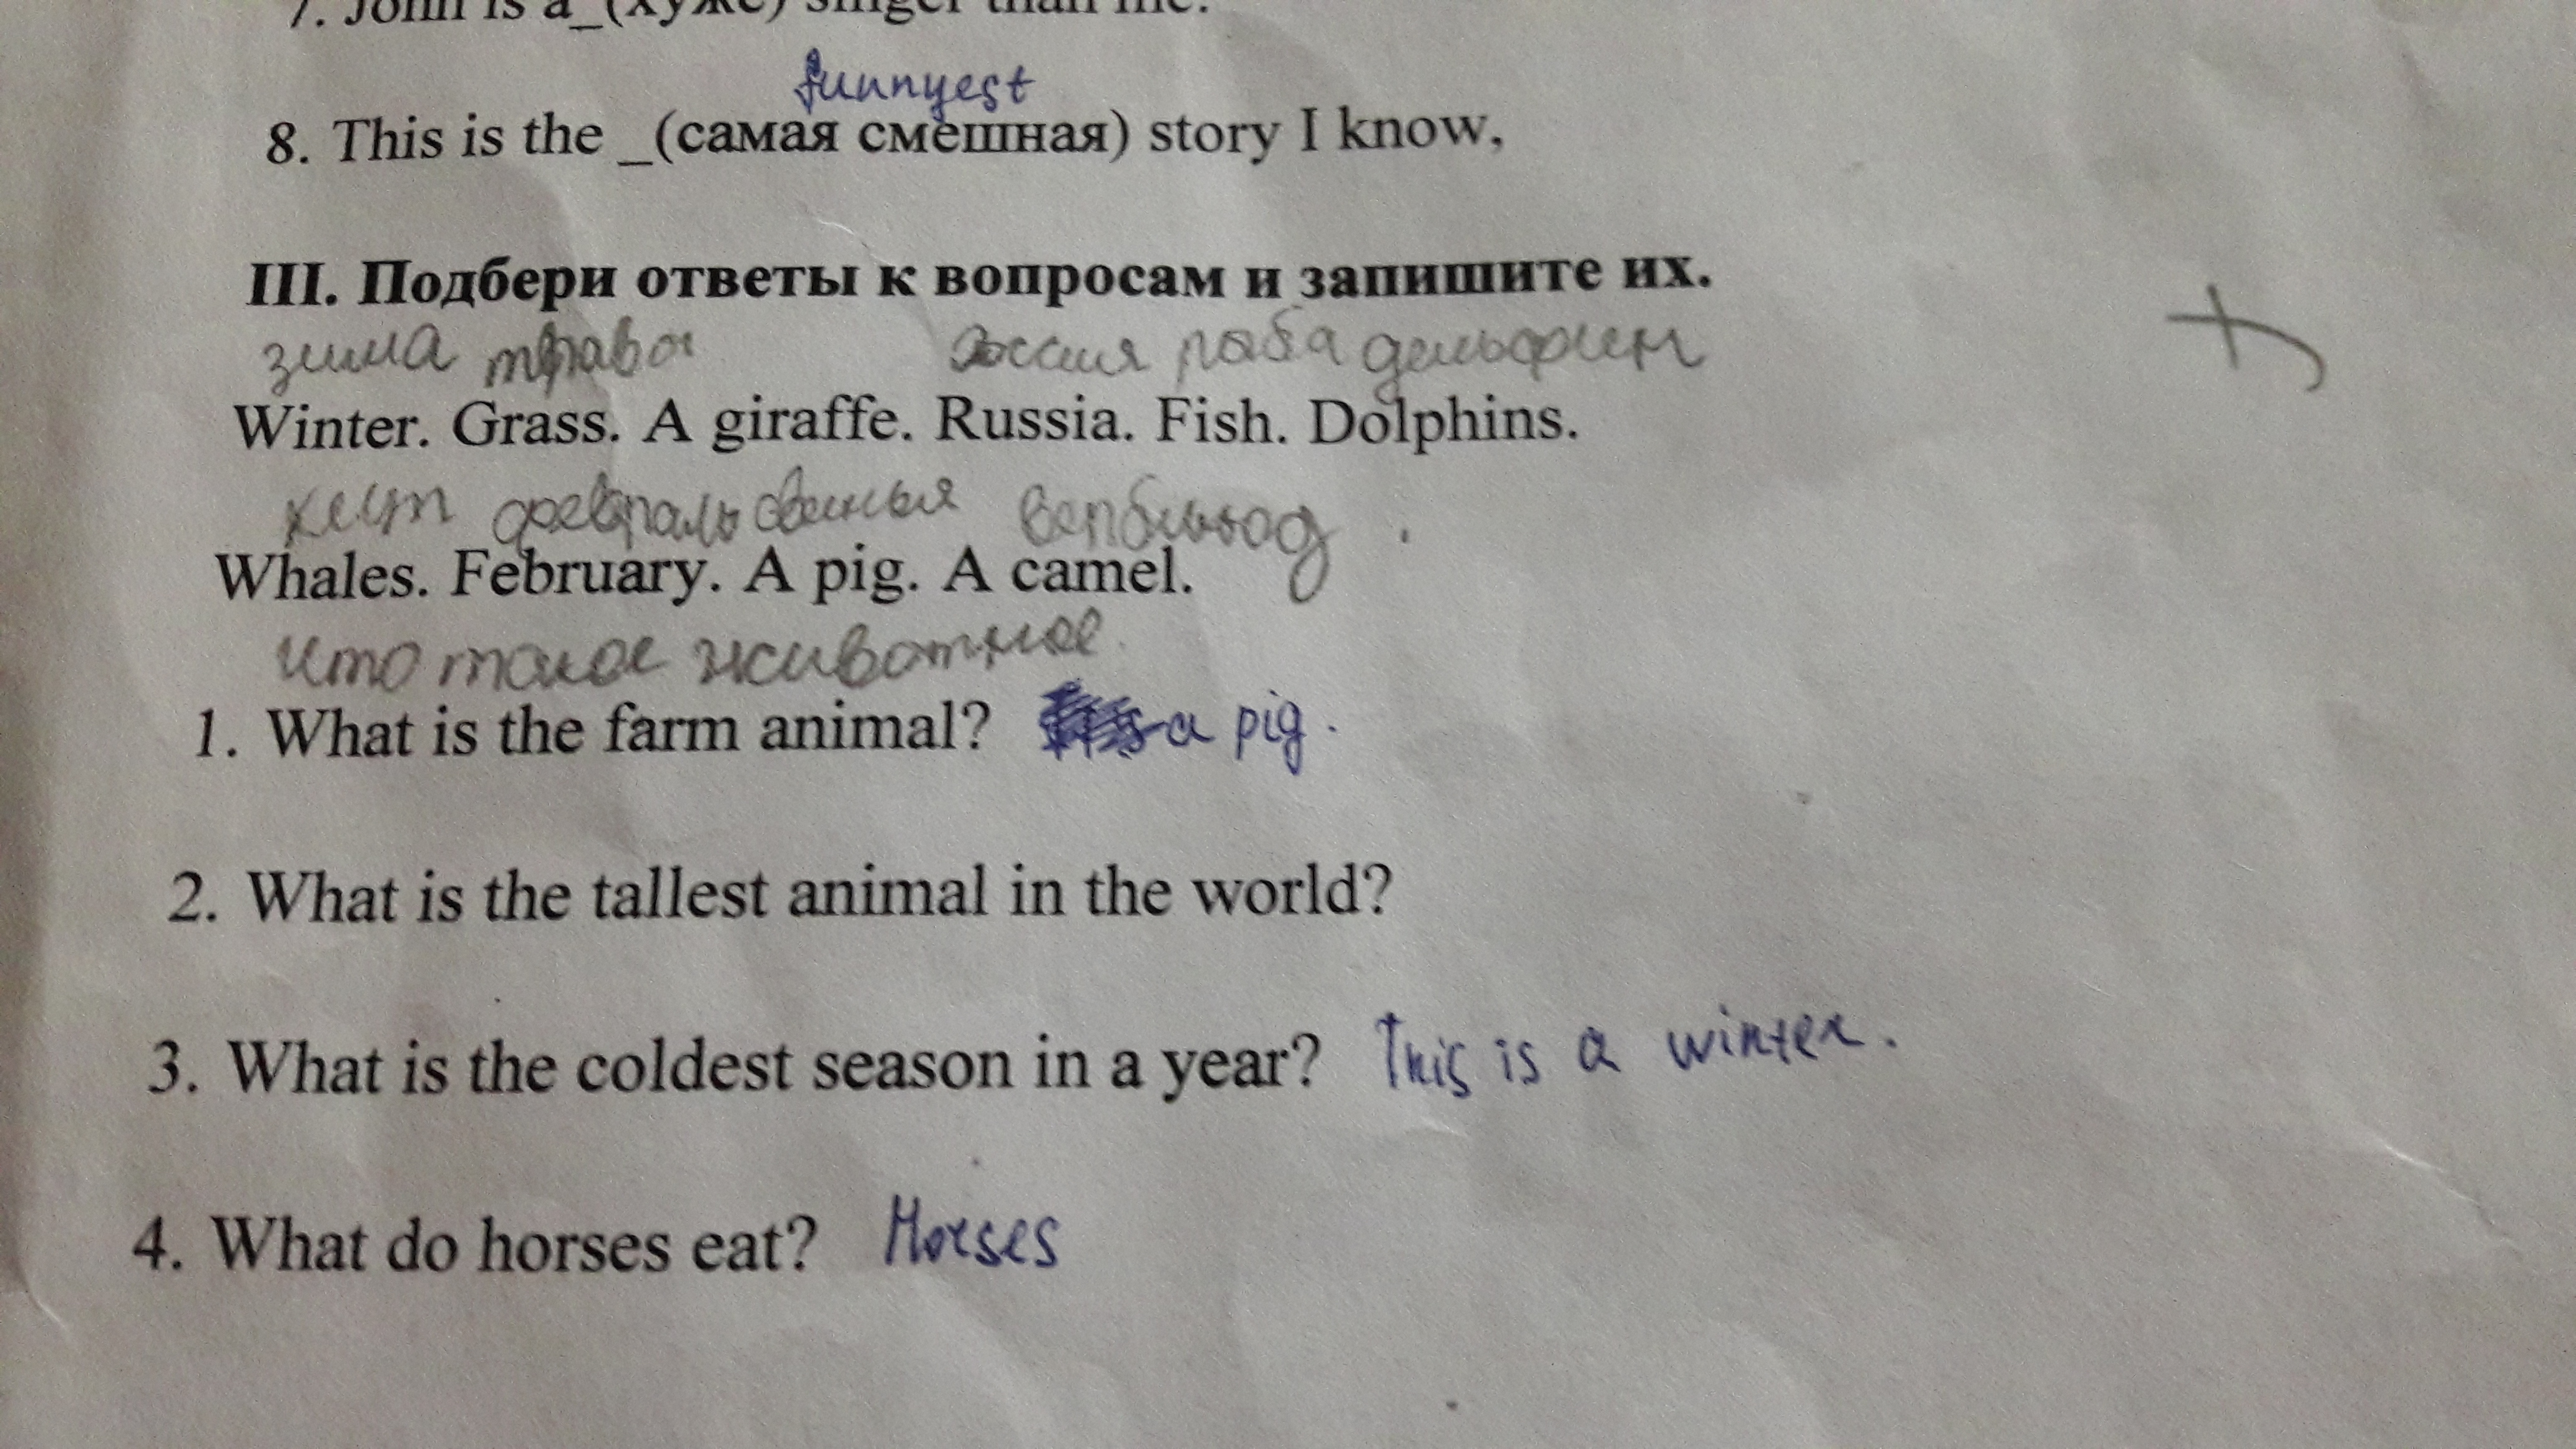 7. John is a_(хуже) singer than me.
funnyest
8. This is the _(самая смешная) story I know,
III. Подбери ответы к вопросам и запишите их.
зима трава рыба дельфин
Winter. Grass. A giraffe. Russia. Fish. Dolphins.
кит февраль свинья верблюд
Whales. February. A pig. A camel.
что такое животное
1. What is the farm animal? a pig.
2. What is the tallest animal in the world?
3. What is the coldest season in a year? This is a winter.
4. What do horses eat? Horses